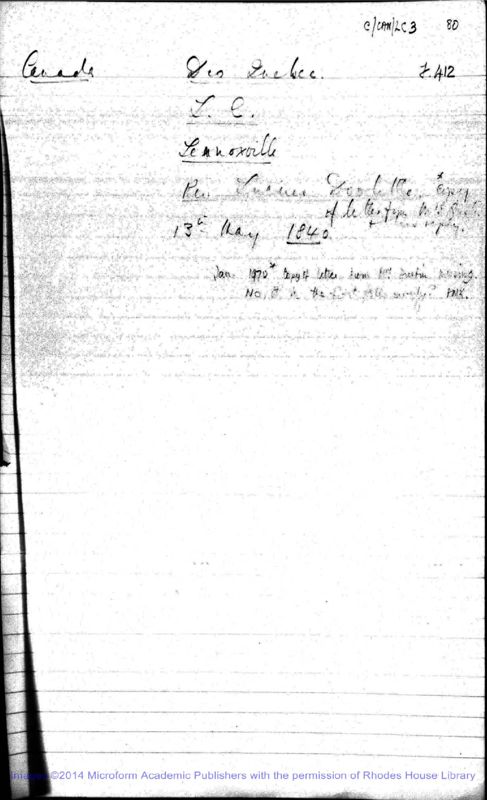 C/CAN/LC3 80
Canada Dio Quebec. F.412
L. C.
Lennoxville
Rev. Lucius Doolittle. * Copy
of letter from Mr
13th May 1840 reply.
Jan. 1970 * Copy of letter from Mr missing.
No, it is the first
Images ©2014 Microform Academic Publishers with the permission of Rhodes House Library